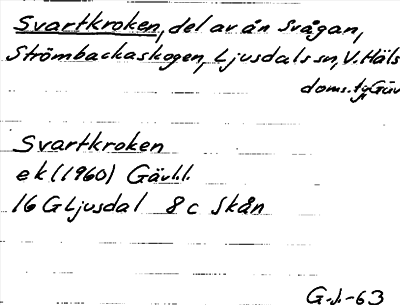 Svartkroken, del av ån Svågan,
Strömbackaskogen, Ljusdals sn, V. Häls
doms. tg Gäv
Svartkroken
ek (1960) Gävl.l.
16 G Ljusdal 8 c Skån
G.J.-63